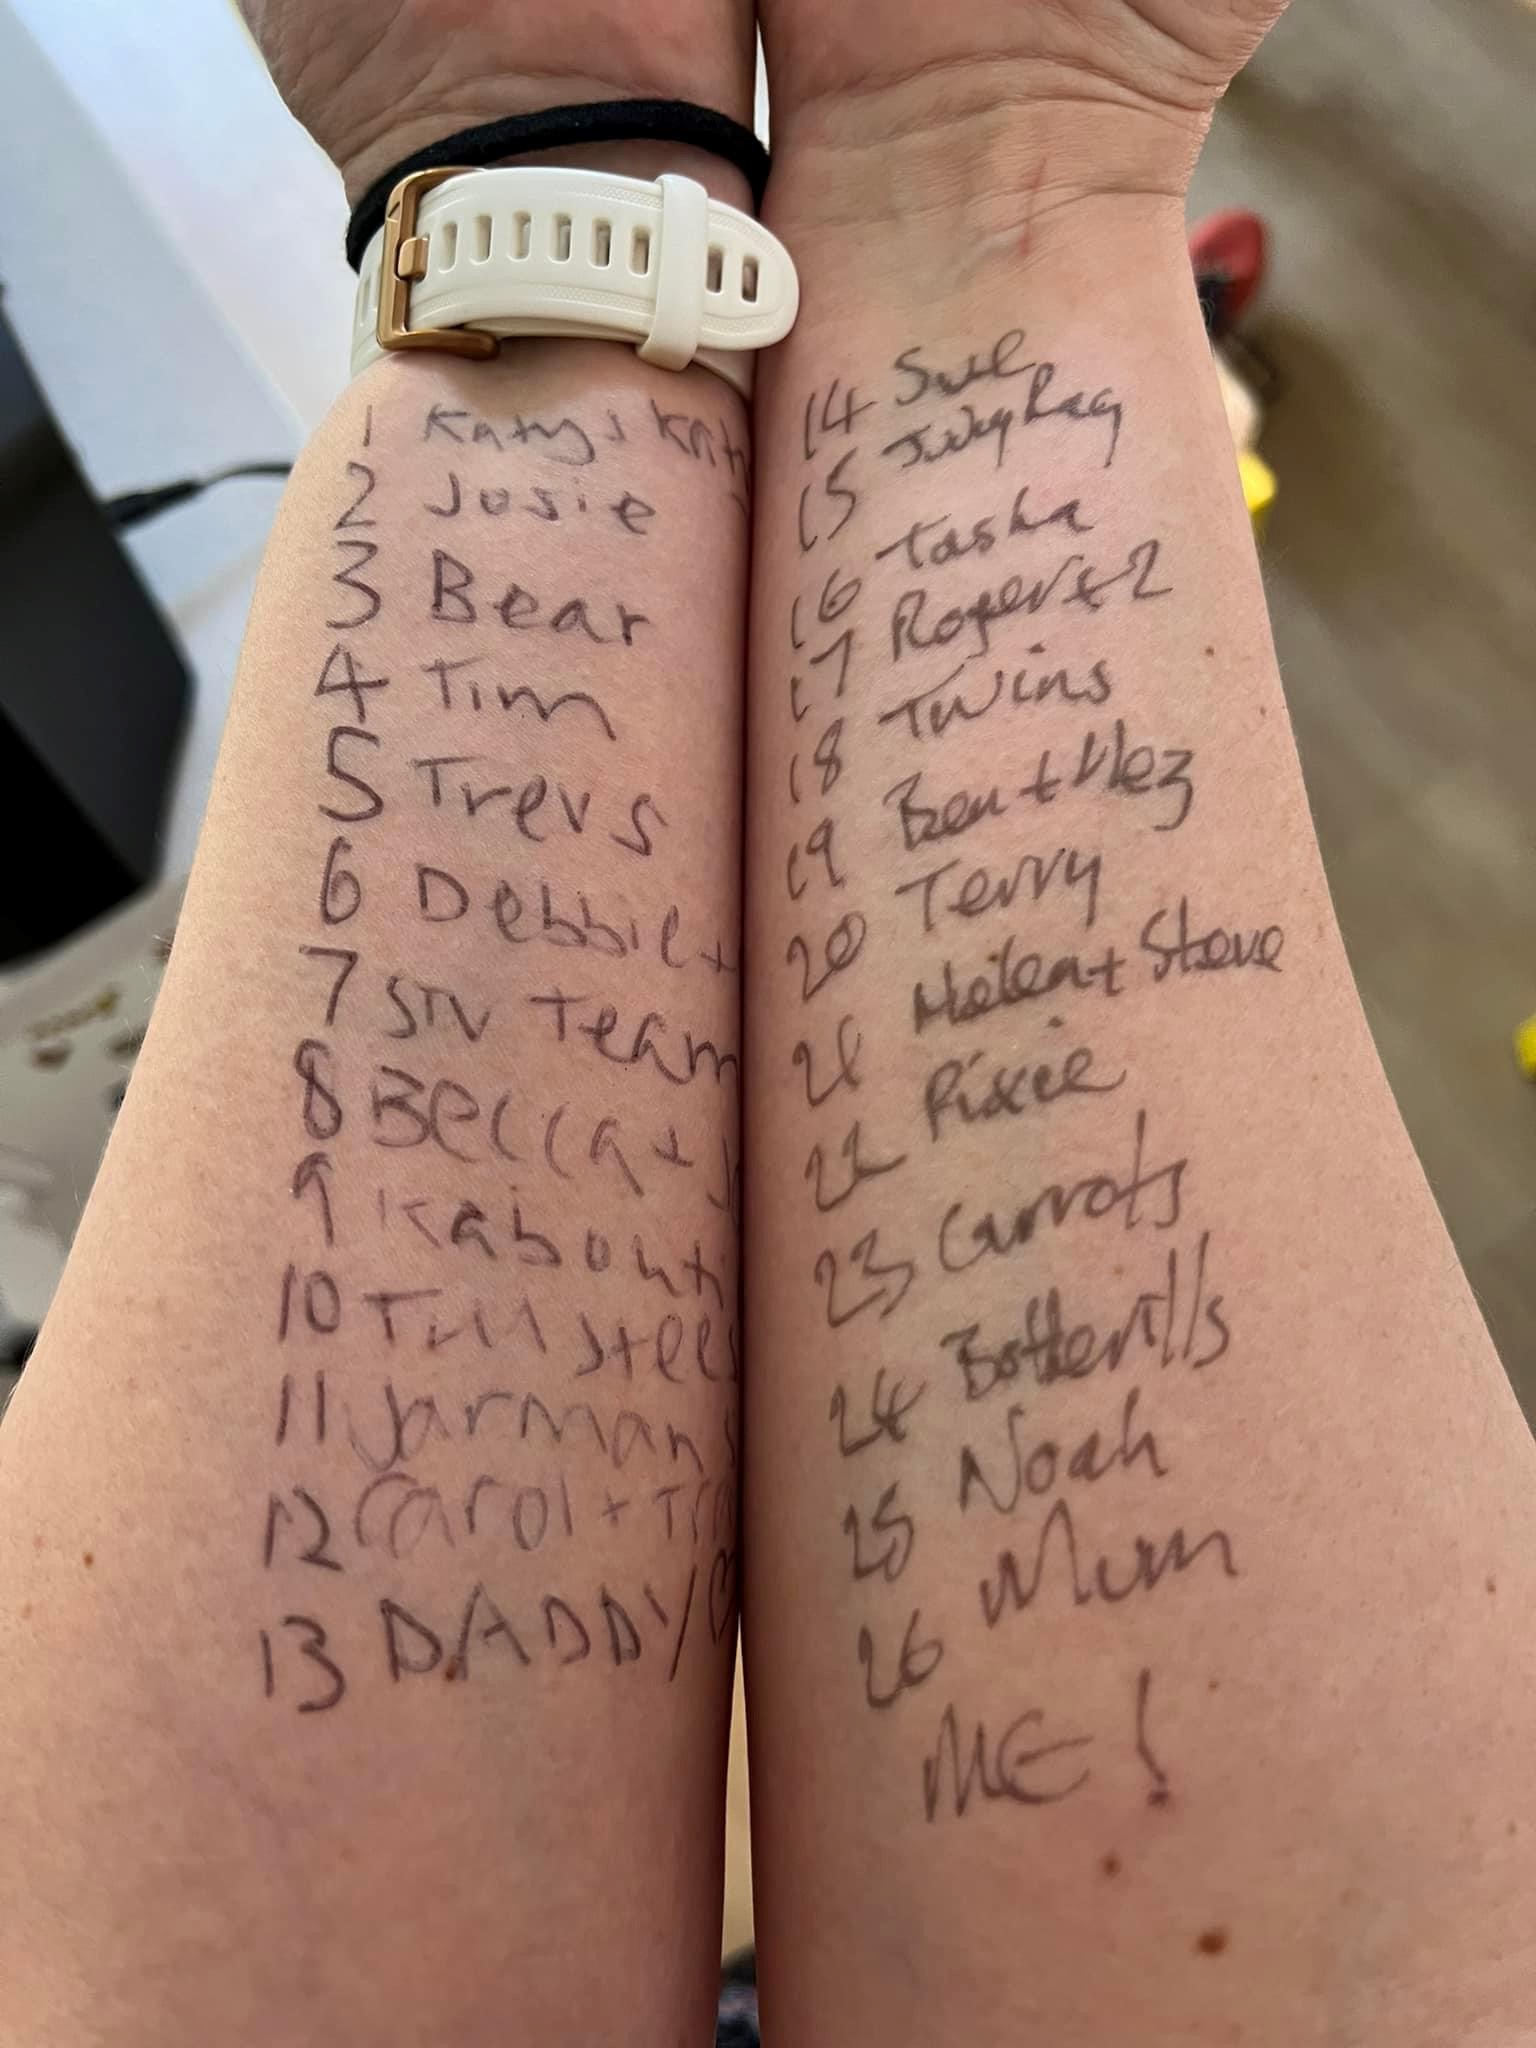 1 Katy &
2 Josie
3 Bear
4 Tim
5 Trevs
6 Debbie +
7 STV Team
8 Becca +
9 Kabouti
10 Tim
11 Jarmans
12 Carol +
13 DADDY ♡
14
15
16 Tasha
17 Roger x2
18 Twins
19 Ben +
20 Terry
21 Helen + Steve
22 Pixie
23 Carrots
24 Botterills
25 Noah
26 Mum
ME!